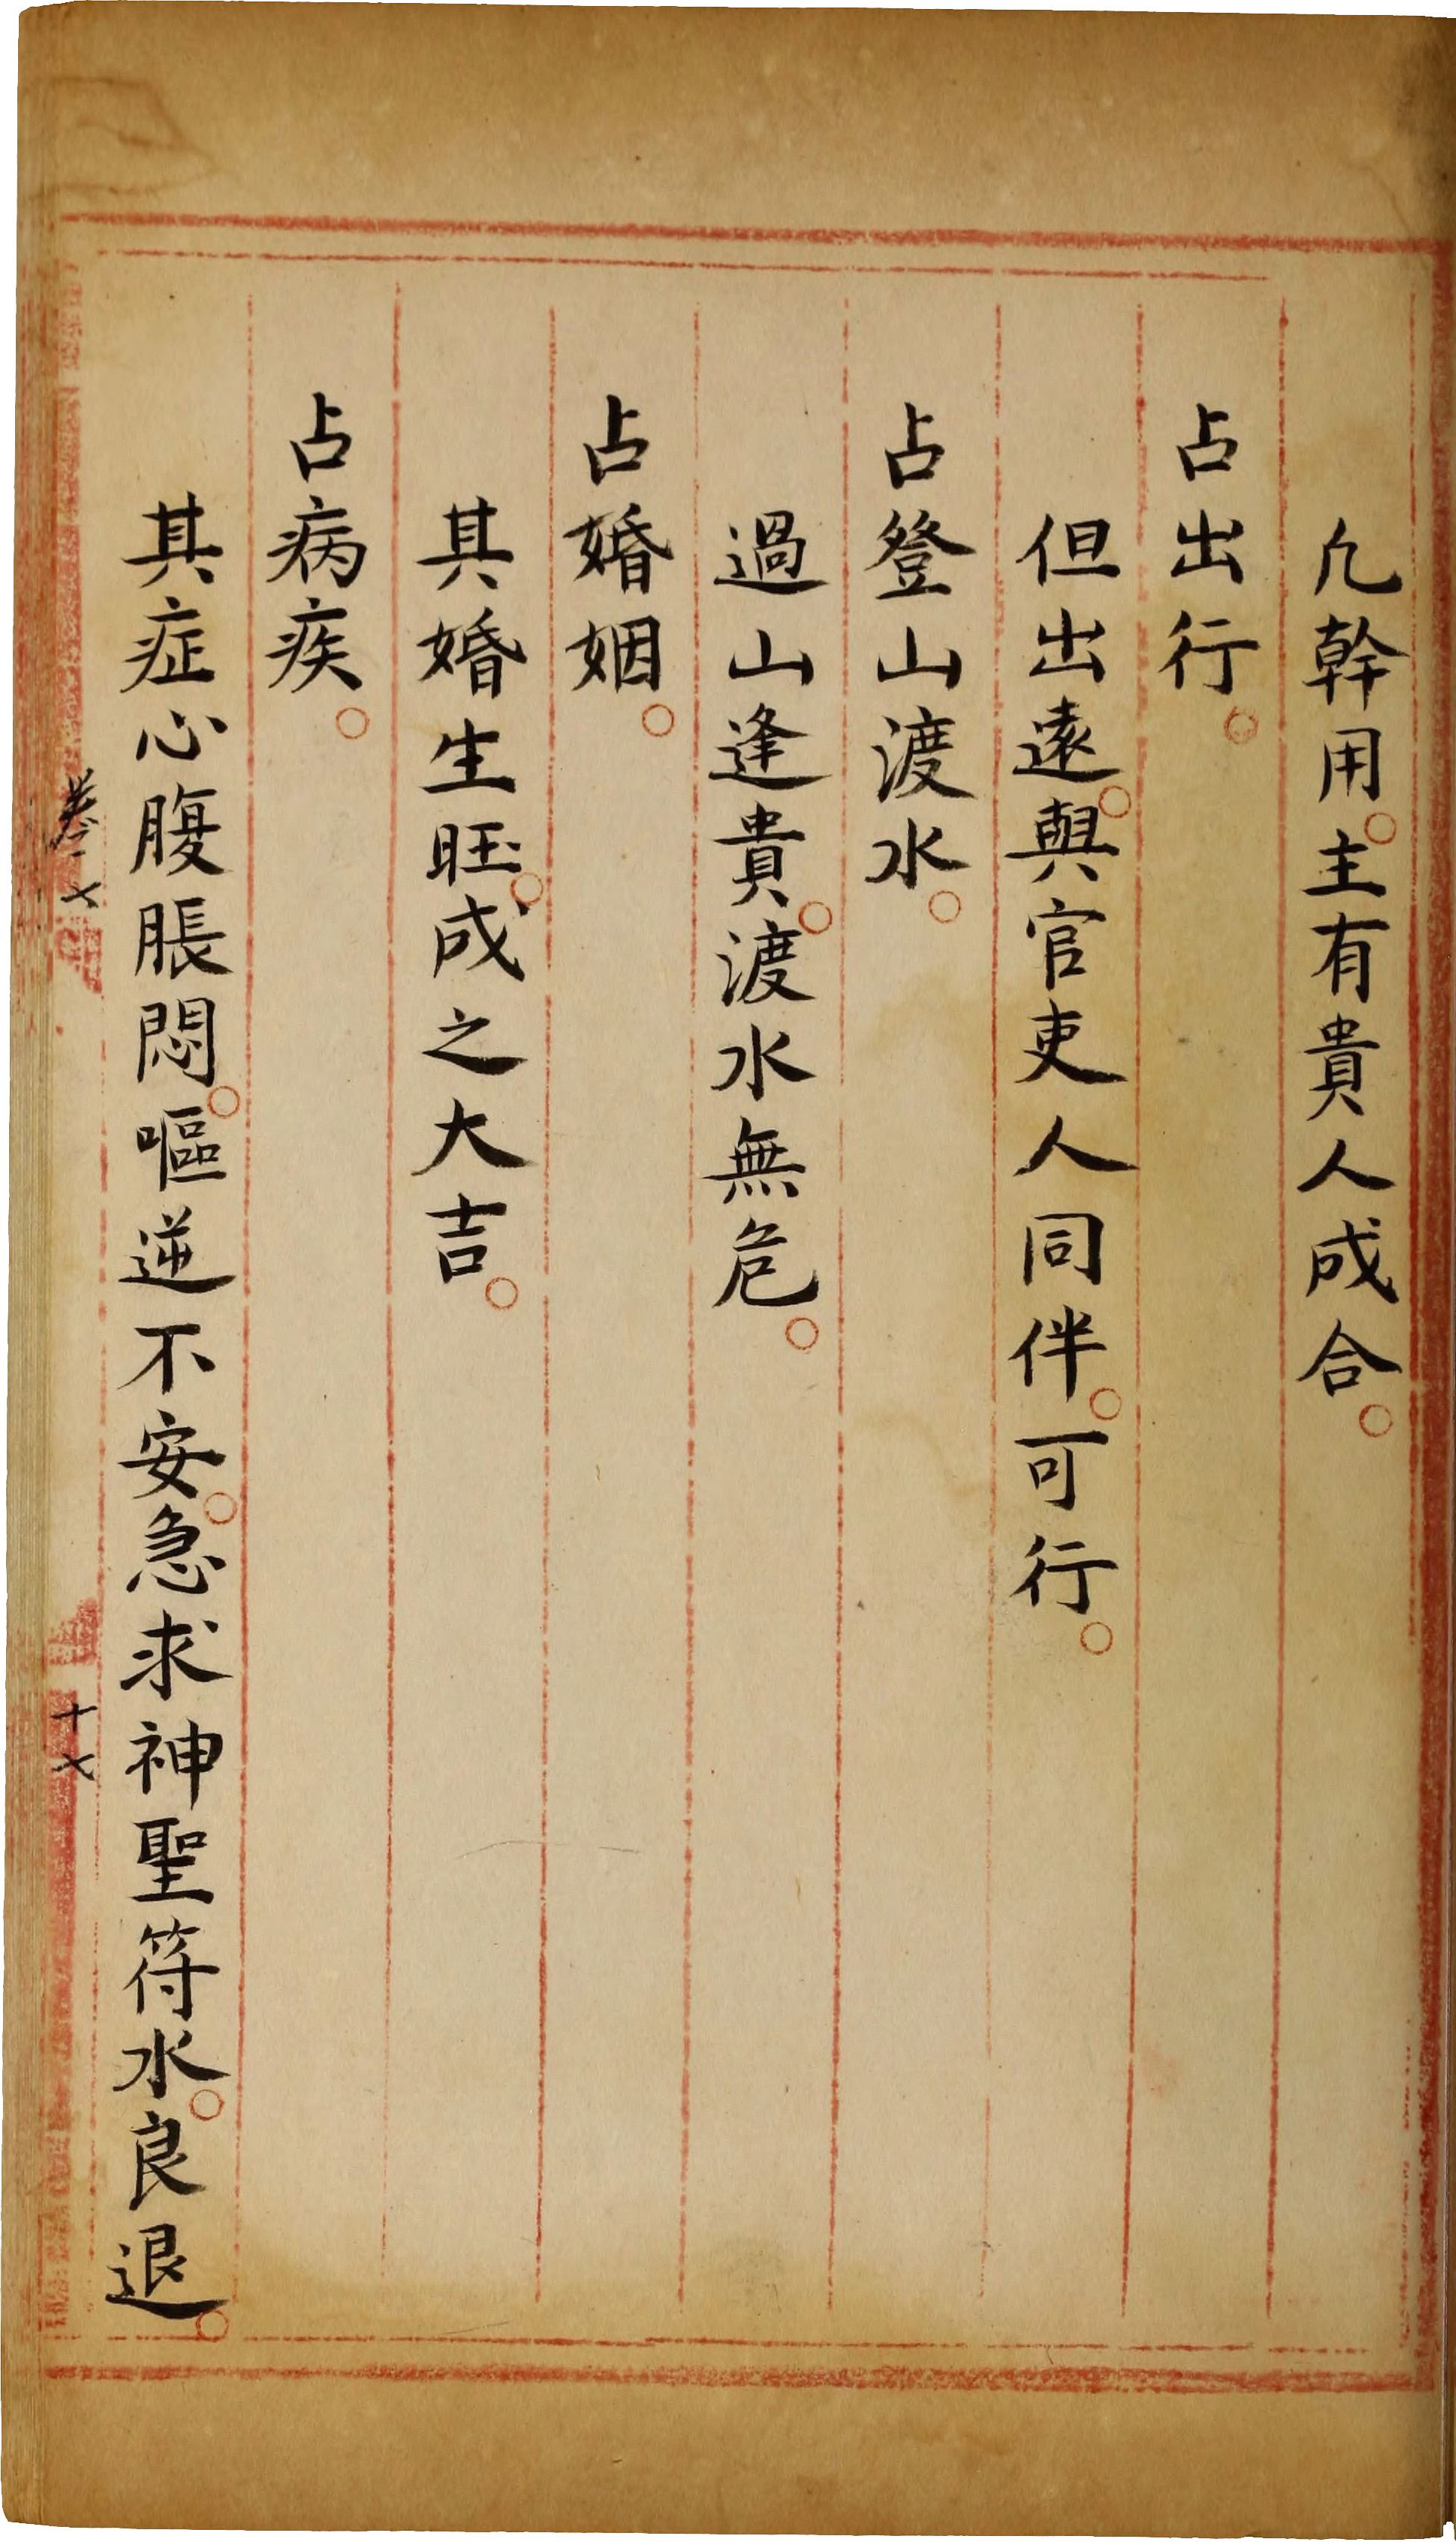 凢幹用。主有貴人成合。
占出行。
但出遠。與官吏人同伴。可行。
占登山渡水。
過山逢貴。渡水無危。
占婚姻。
其婚生旺。成之大吉。
占病疾。
其症心腹脹悶。嘔逆不安。急求神聖符水。良退。
十七